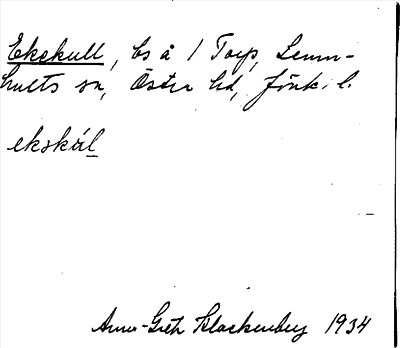 Ekskull, bs å 1 Torp, Lemn-
hults sn, Östra hd, Jönk. l.
ekskúl
Anna-Greta Klackenberg 1934